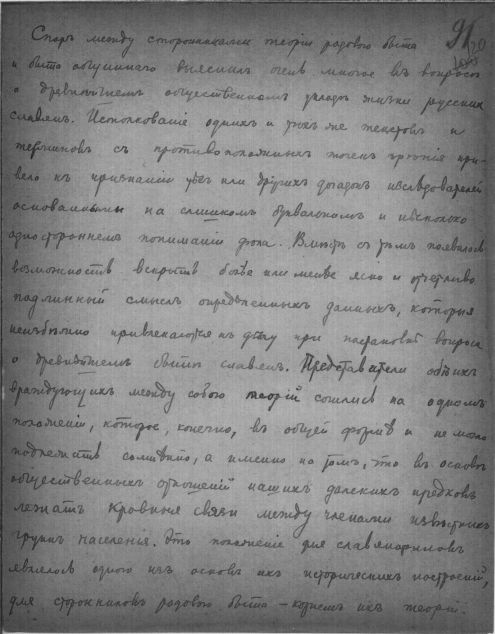 91
Споръ между сторонниками теоріи родового быта
и быта общиннаго выяснилъ очень многое въ вопросѣ
о древнѣйшемъ общественномъ укладѣ жизни русскихъ
славянъ. Истолкованіе однихъ и тѣхъ же текстовъ и
терминовъ съ противоположныхъ точекъ зрѣнія при-
вело къ признанію тѣхъ или другихъ догадокъ изслѣдователей
основанными на слишкомъ буквальномъ и нѣсколько
одностороннемъ пониманіи дѣла. Вмѣстѣ съ тѣмъ появилась
возможность вскрыть болѣе или менѣе ясно и отчетливо
подлинный смыслъ опредѣленныхъ данныхъ, которыя
неизбѣжно привлекаются къ дѣлу при постановкѣ вопроса
о древнѣйшемъ бытѣ славянъ. Представители обѣихъ
враждующихъ между собою теорій сошлись на одномъ
положеніи, которое, конечно, въ общей формѣ и не могло
подлежать сомнѣнію, а именно на томъ, что въ основѣ
общественныхъ отношеній нашихъ далекихъ предковъ
лежатъ кровныя связи между членами извѣстныхъ
группъ населенія. Это положеніе для славянофиловъ
являлось одною изъ основъ ихъ историческихъ построеній,
для сторонниковъ родового быта – корнемъ ихъ теоріи.